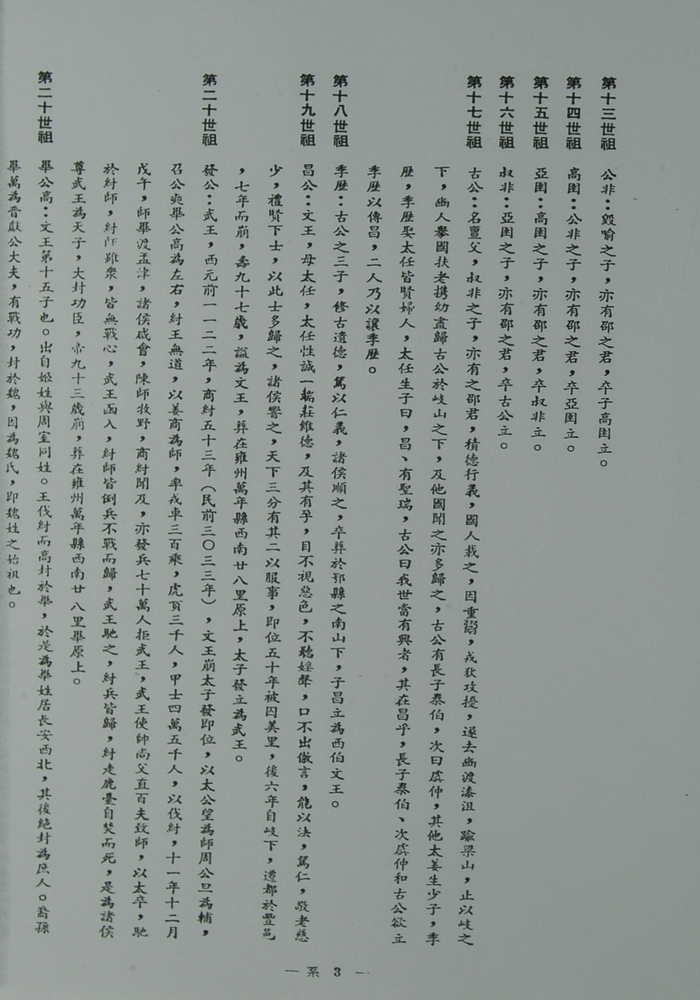 第十三世祖　公非：毀喻之子，亦有邵之君，卒子高圉立。
第十四世祖　高圉：公非之子，亦有邵之君，卒亞圉立。
第十五世祖　亞圉：高圉之子，亦有邵之君，卒叔非立。
第十六世祖　叔非：亞圉之子，亦有邵之君，卒古公立。
第十七世祖　古公：名亶父，叔非之子，亦有之邵君，積德行義，國人戴之，因重鬻，戎狄攻擾，遂去豳渡漆沮，踰梁山，止以岐之
下，豳人舉國扶老携幼盡歸古公於岐山之下，及他國聞之亦多歸之，古公有長子泰伯，次曰虞仲，其他太姜生少子，季
歷，季歷娶太任皆賢婦人，太任生子曰，昌、有聖瑞，古公曰我世當有興者，其在昌乎，長子泰伯、次虞仲和古公欲立
季歷以傳昌，二人乃以讓季歷。
第十八世祖　季歷：古公之三子，修古遺德，篤以仁義，諸侯順之，卒葬於鄠縣之南山下，子昌立為西伯文王。
第十九世祖　昌公：文王，母太任，太任性誠一端莊維德，及其有孕，目不視惡色，不聽婬聲，口不出傲言，能以法，篤仁，敬老慈
少，禮賢下士，以此士多歸之，諸侯嚮之，天下三分有其二以服事，即位五十年被囚羑里，後六年自岐下，遷都於豐邑
，七年而崩，壽九十七歲，謚為文王，葬在雍州萬年縣西南廿八里原上，太子發立為武王。
第二十世祖　發公：武王，西元前一一二二年，商紂五十三年（民前三〇三三年），文王崩太子發即位，以太公望為師周公旦為輔，
召公奭畢公高為左右，紂王無道，以姜商為師，率戎車三百乘，虎賁三千人，甲士四萬五千人，以伐紂，十一年十二月
戊午，師畢渡孟津，諸侯咸會，陳師牧野，商紂聞及，亦發兵七十萬人拒武王，武王使師尚父直百夫致師，以太卒，馳
於紂師，紂師雖衆，皆無戰心，武王函入，紂師皆倒兵不戰而歸，武王馳之，紂兵皆歸，紂走鹿臺自焚而死，是為諸侯
尊武王為天子，大封功臣，帝九十三歲崩，葬在雍州萬年縣西南廿八里畢原上。
第二十世祖　畢公高：文王第十五子也。出自姬姓與周室同姓。王伐紂而高封於畢，於是為畢姓居長安西北，其後絶封為庶人。裔孫
畢萬為晋獻公大夫，有戰功，封於魏，因為魏氏，即魏姓之始祖也。
— 系 3 —